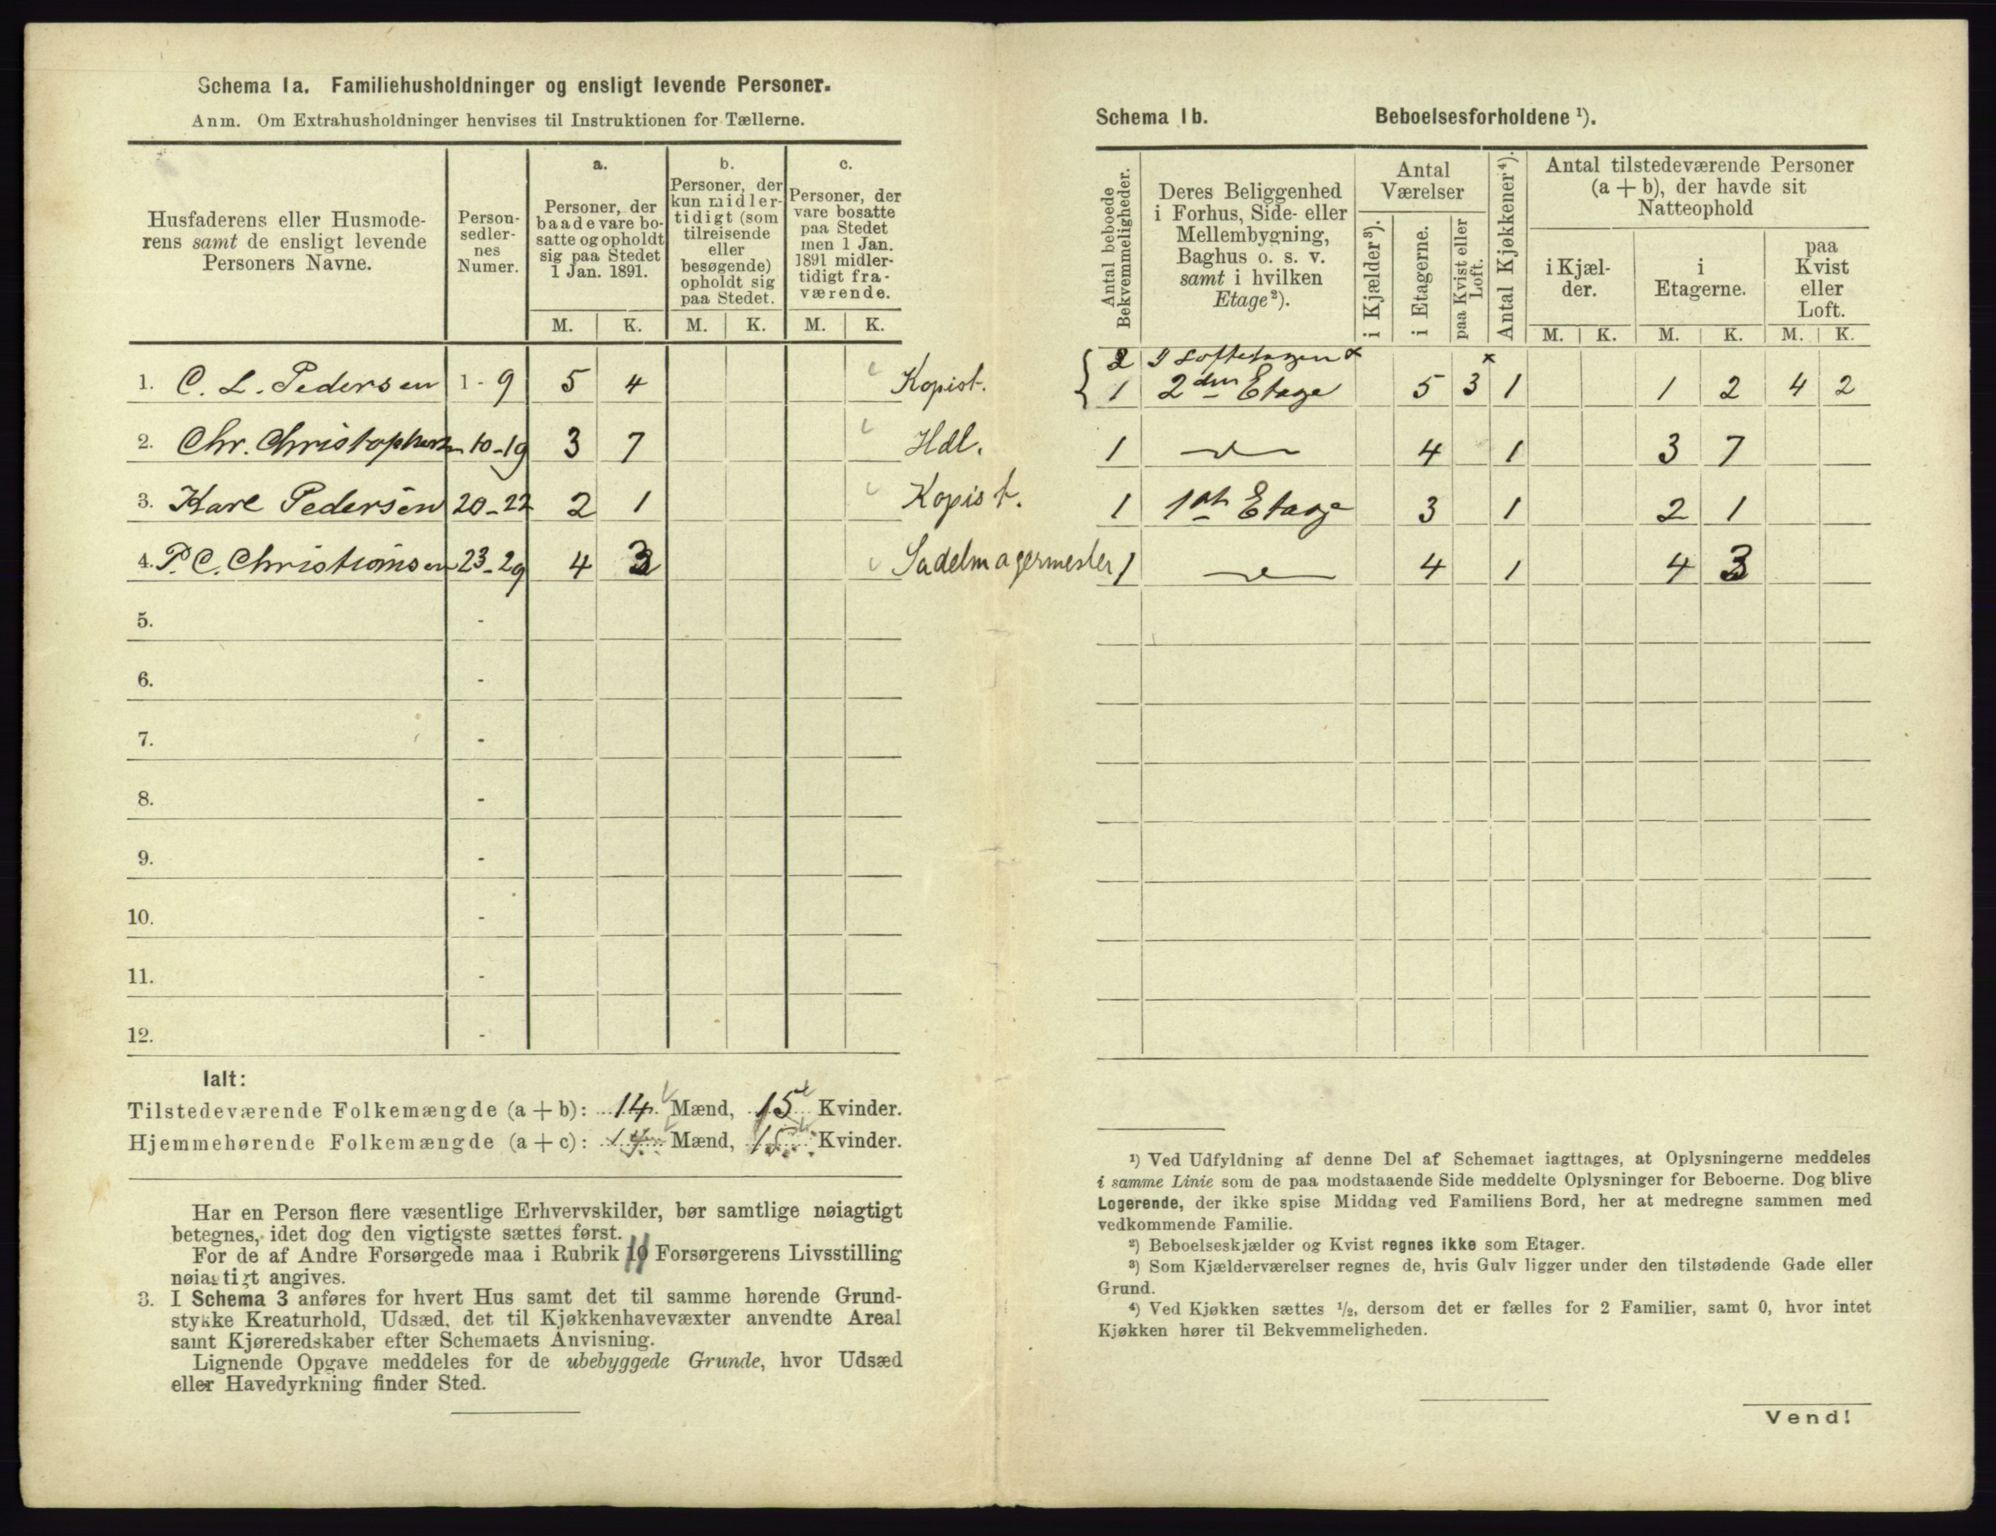 Schema 1a. Familiehusholdninger og ensligt levende Personer.
Anm. Om Extrahusholdninger henvises til Instruktionen for Tællerne.
Husfaderens eller Husmode-
rens samt de ensligt levende
Personers Navne.
Person-
sedler-
nes
Numer.
a.
Personer, der
baade vare bo-
satte og opholdt
sig paa Stedet
1 Jan. 1891.
b.
Personer, der
kun midler-
tidigt (som
tilreisende
eller
besøgende)
opholdt sig
paa Stedet.
c.
Personer, der
vare bosatte
paa Stedet
men 1 Jan.
1891 midler-
tidigt fra-
værende.
M. K. M. K. M. K.
1. C. L. Pedersen 1 - 9 5 4 Kopist.
2. Chr. Christophersen 10-19 3 7 Hdl.
3. Karl Pedersen 20-22 2 1 Kopist.
4. P. C. Christiansen 23-29 4 3 Sadelmagermester
5. -
6. -
7. -
8. -
9. -
10. -
11. -
12. -
Ialt:
Tilstedeværende Folkemængde (a + b): 14 Mænd, 15 Kvinder.
Hjemmehørende Folkemængde (a + c): 14 Mænd, 15 Kvinder.
Har en Person flere væsentlige Erhvervskilder, bør samtlige nøiagtigt
betegnes, idet dog den vigtigste sættes først.
For de af Andre Forsørgede maa i Rubrik 11 Forsørgerens Livsstilling
nøiagtigt angives.
3. I Schema 3 anføres for hvert Hus samt det til samme hørende Grund-
stykke Kreaturhold, Udsæd, det til Kjøkkenhavevæxter anvendte Areal
samt Kjøreredskaber efter Schemaets Anvisning.
Lignende Opgave meddeles for de ubebyggede Grunde, hvor Udsæd
eller Havedyrkning finder Sted.
Schema 1b. Beboelsesforholdene ¹).
Antal beboede
Bekvemmeligheder.
Deres Beliggenhed
i Forhus, Side- eller
Mellembygning,
Baghus o. s. v.
samt i hvilken
Etage²).
Antal
Værelser
i Kjælder³).
i Etagerne.
paa Kvist eller
Loft.
Antal Kjøkkener⁴).
Antal tilstedeværende Personer
(a + b), der havde sit
Natteophold
i Kjæl-
der.
i
Etagerne.
paa
Kvist
eller
Loft.
M. K. M. K. M. K.
2 I Loftetagen x x
1 2den Etage 5 3 1 1 2 4 2
1 4 1 3 7
1 1ste Etage 3 1 2 1
1 4 1 4 3
¹) Ved Udfyldning af denne Del af Schemaet iagttages, at Oplysningerne meddeles
i samme Linie som de paa modstaaende Side meddelte Oplysninger for Beboerne. Dog blive
Logerende, der ikke spise Middag ved Familiens Bord, her at medregne sammen med
vedkommende Familie.
²) Beboelseskjælder og Kvist regnes ikke som Etager.
³) Som Kjælderværelser regnes de, hvis Gulv ligger under den tilstødende Gade eller
Grund.
⁴) Ved Kjøkken sættes ½, dersom det er fælles for 2 Familier, samt 0, hvor intet
Kjøkken hører til Bekvemmeligheden.
Vend!